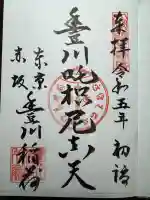 奉拝 令和五年 初詣
豊川吒枳尼真天
東京
赤坂 豊川稲荷